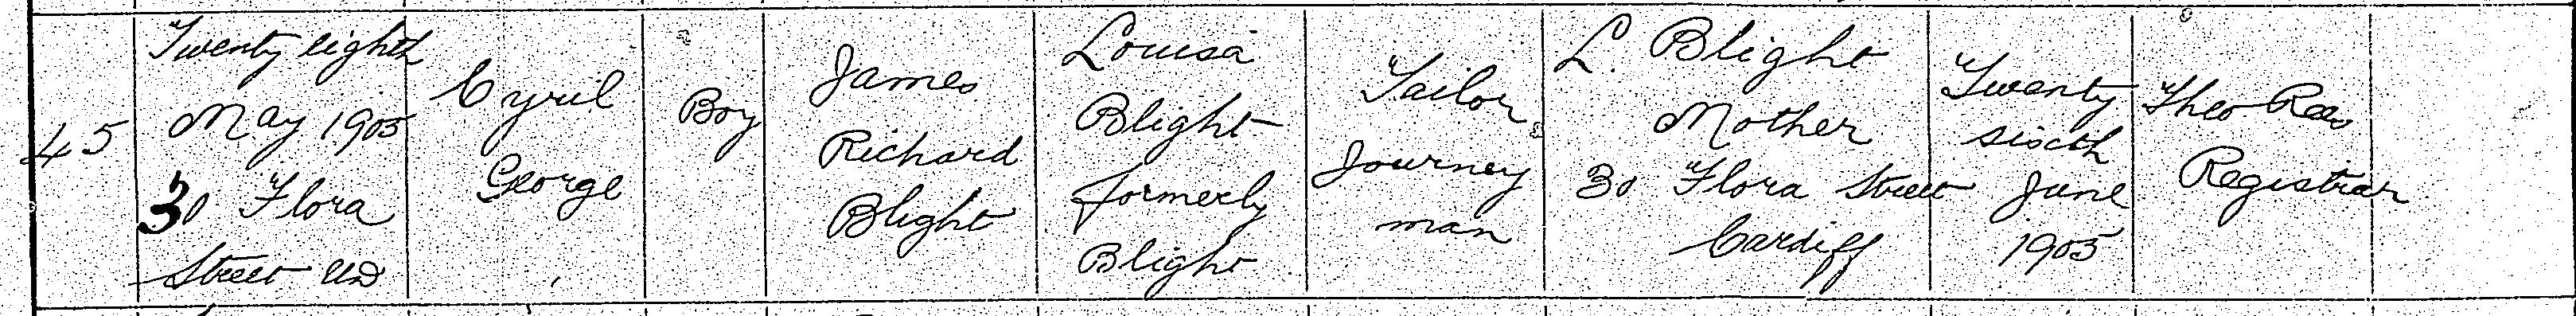 45
Twenty eighth
May 1905
30 Flora
Street UD
Cyril
George
Boy
James
Richard
Blight
Louisa
Blight
formerly
Blight
Tailor
Journey
man
L. Blight
Mother
30 Flora Street
Cardiff
Twenty
sixth
June
1905
Theo Rees
Registrar